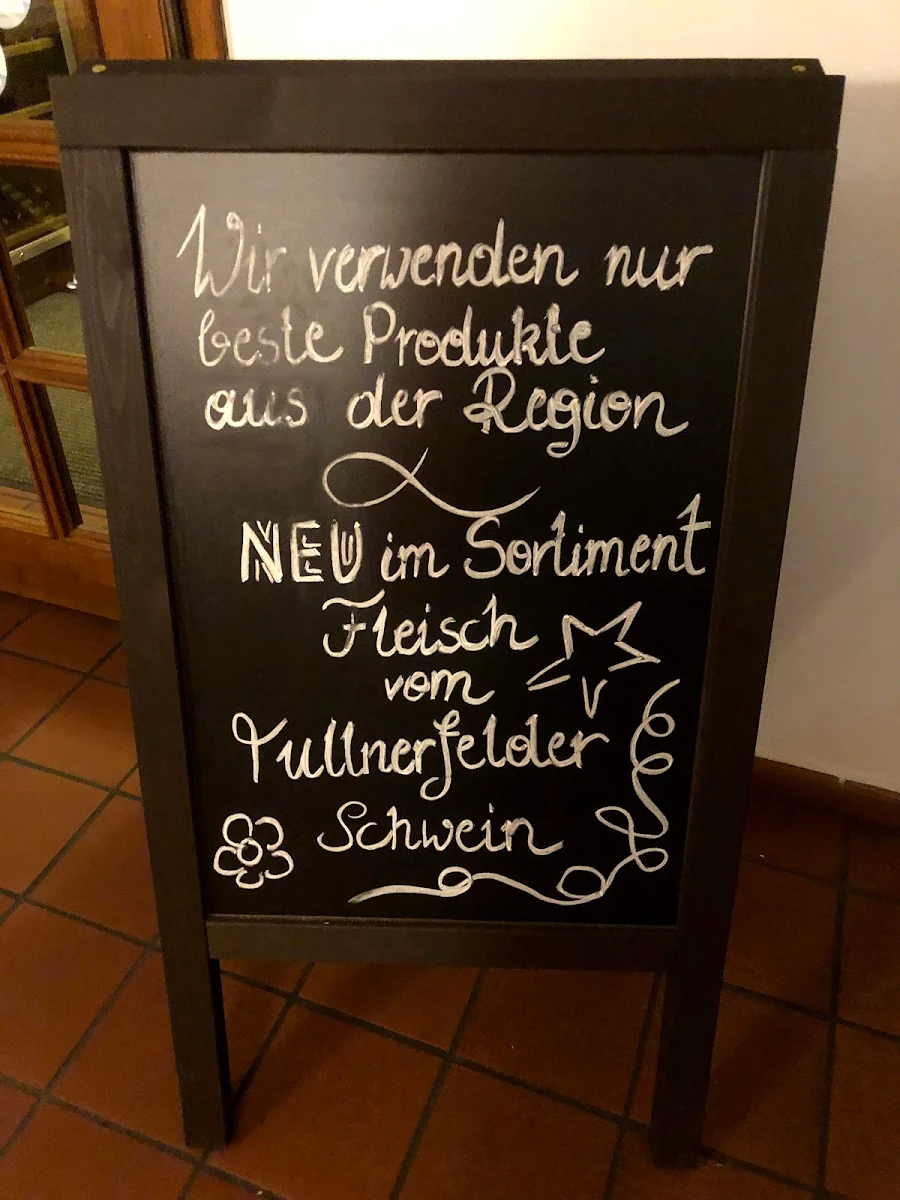 Wir verwenden nur
beste Produkte
aus der Region
NEU im Sortiment
Fleisch
vom
Tullnerfelder
Schwein